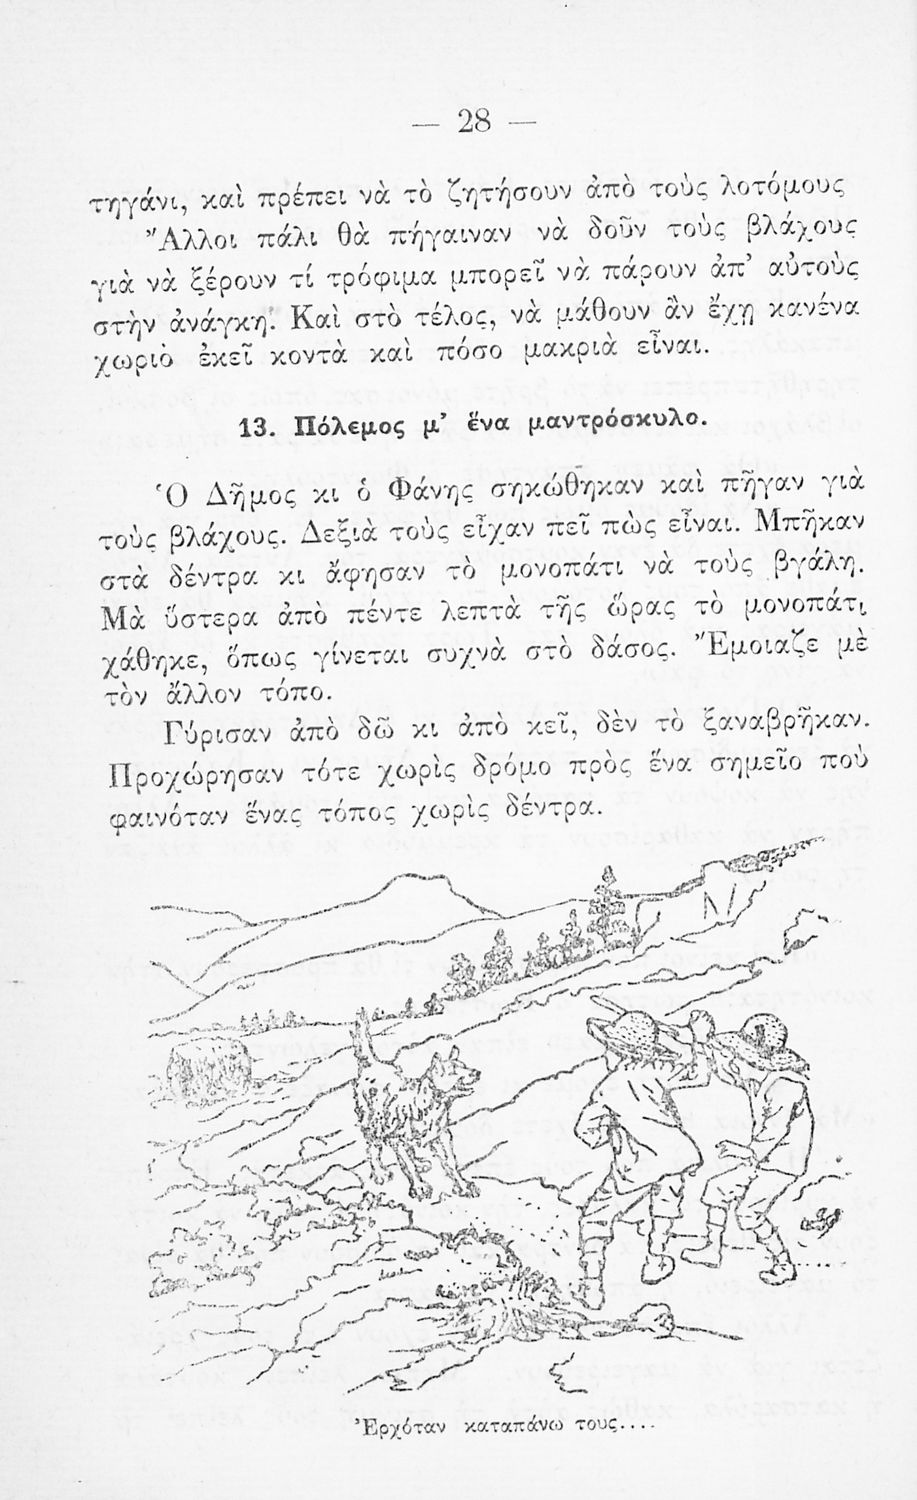 — 28 —
τηγάνι, καὶ πρέπει νὰ τὸ ζητήσουν ἀπὸ τοὺς λοτόμους
Ἄλλοι πάλι θὰ πήγαιναν νὰ δοῦν τοὺς βλάχους
γιὰ νὰ ξέρουν τί τρόφιμα μπορεῖ νὰ πάρουν ἀπ’ αὐτοὺς
στὴν ἀνάγκη. Καὶ στὸ τέλος, νὰ μάθουν ἂν ἔχῃ κανένα
χωριὸ ἐκεῖ κοντὰ καὶ πόσο μακριὰ εἶναι.
13. Πόλεμος μ’ ἕνα μαντρόσκυλο.
Ὁ Δῆμος κι ὁ Φάνης σηκώθηκαν καὶ πῆγαν γιὰ
τοὺς βλάχους. Δεξιὰ τοὺς εἶχαν πεῖ πὼς εἶναι. Μπῆκαν
στὰ δέντρα κι ἄφησαν τὸ μονοπάτι νὰ τοὺς βγάλη.
Μὰ ὕστερα ἀπὸ πέντε λεπτὰ τῆς ὥρας τὸ μονοπάτι
χάθηκε, ὅπως γίνεται συχνὰ στὸ δάσος. Ἔμοιαζε μὲ
τὸν ἄλλον τόπο.
Γύρισαν ἀπὸ δῶ κι ἀπὸ κεῖ, δὲν τὸ ξαναβρῆκαν.
Προχώρησαν τότε χωρὶς δρόμο πρὸς ἕνα σημεῖο ποὺ
φαινόταν ἕνας τόπος χωρὶς δέντρα.
Ἐρχόταν καταπάνω τους....